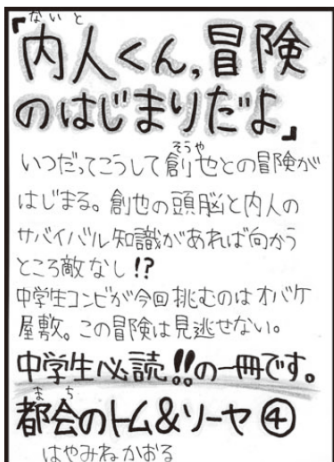 ないと
『内人くん,冒険
のはじまりだよ』
そうや
いつだってこうして創也との冒険が
はじまる。創也の頭脳と内人の
サバイバル知識があれば向かう
ところ敵なし!?
中学生コンビが今回挑むのはオバケ
屋敷。この冒険は見逃せない。
中学生必読!!の一冊です。
まち
都会のトム&ソーヤ④
はやみねかおる